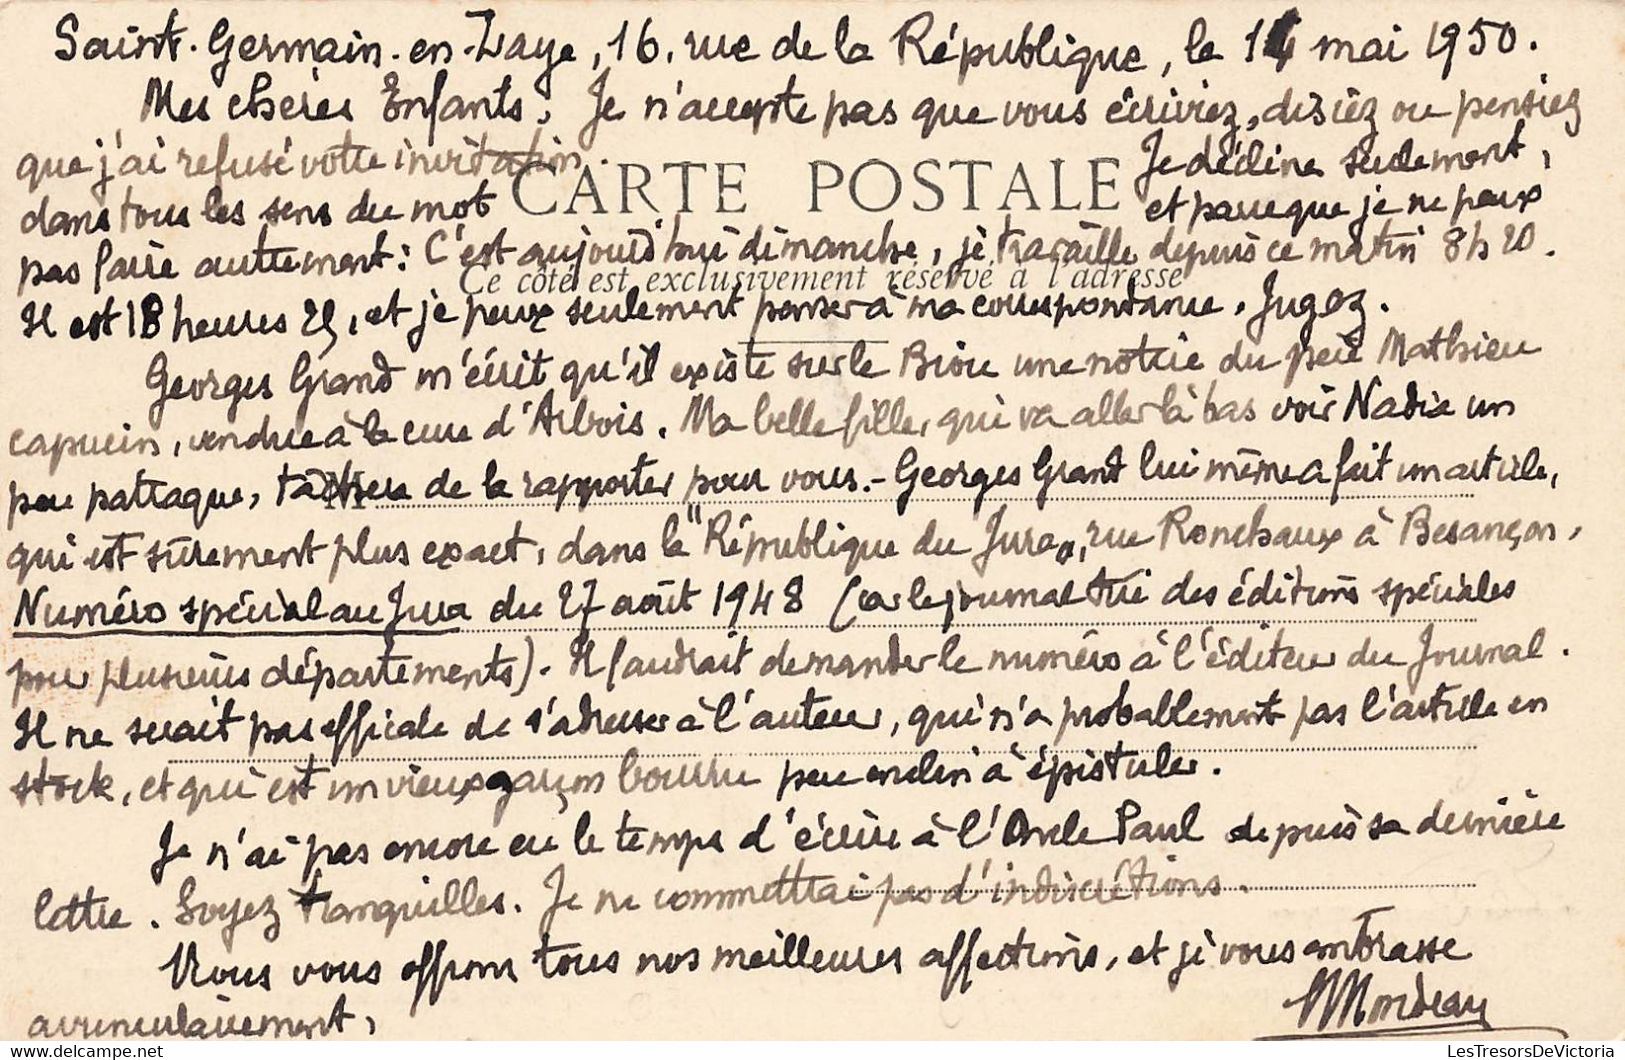 Saint-Germain-en-Laye, 16, rue de la République, le 14 mai 1950.
Mes chères Enfants, Je n'accepte pas que vous écriviez, disiez ou pensiez
que j'ai refusé votre invitation. Je décline seulement,
CARTE POSTALE
dans tous les sens du mot et parceque je ne peux
pas faire autrement: C'est aujourd'hui dimanche, je travaille depuis ce matin 8h20.
Ce côté est exclusivement réservé à l'adresse
Il est 18 heures 25, et je peux seulement penser à ma correspondance. Jugez.
Georges Grand m'écrit qu'il existe sur le Biou une notice du père Mathieu
capucin, vendue à la cure d'Arbois. Ma belle fille, qui va aller là bas voir Nadia un
peu patraque, tâchera de la rapporter pour vous.- Georges Grand lui même a fait un article,
M
qui est sûrement plus exact, dans la "République du Jura", rue Ronchaux à Besançon,
Numéro spécial au Jura du 27 août 1948 (car le journal tire des éditions spéciales
pour plusieurs départements). Il faudrait demander le numéro à l'éditeur du Journal.
Il ne serait pas efficale de s'adresser à l'auteur, qui n'a probablement pas l'article en
stock, et qui est un vieux garçon bourru peu enclin à épistuler.
Je n'ai pas encore eu le temps d'écrire à l'Oncle Paul depuis sa dernière
lettre. Soyez tranquilles. Je ne commettrai pas d'indiscrétions.
Nous vous offrons tous nos meilleures affections, et je vous embrasse
avunculairement,
LesTresorsDeVictoria